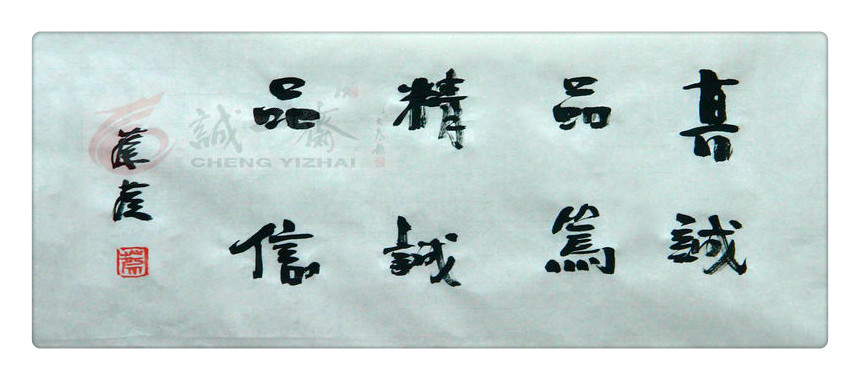 真誠
品篤
精誠
品信
誠一齋
CHENG YIZHAI